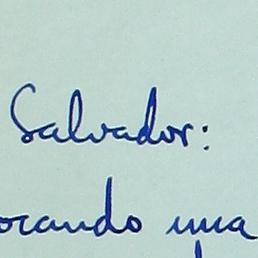 Salvador:
ocando una